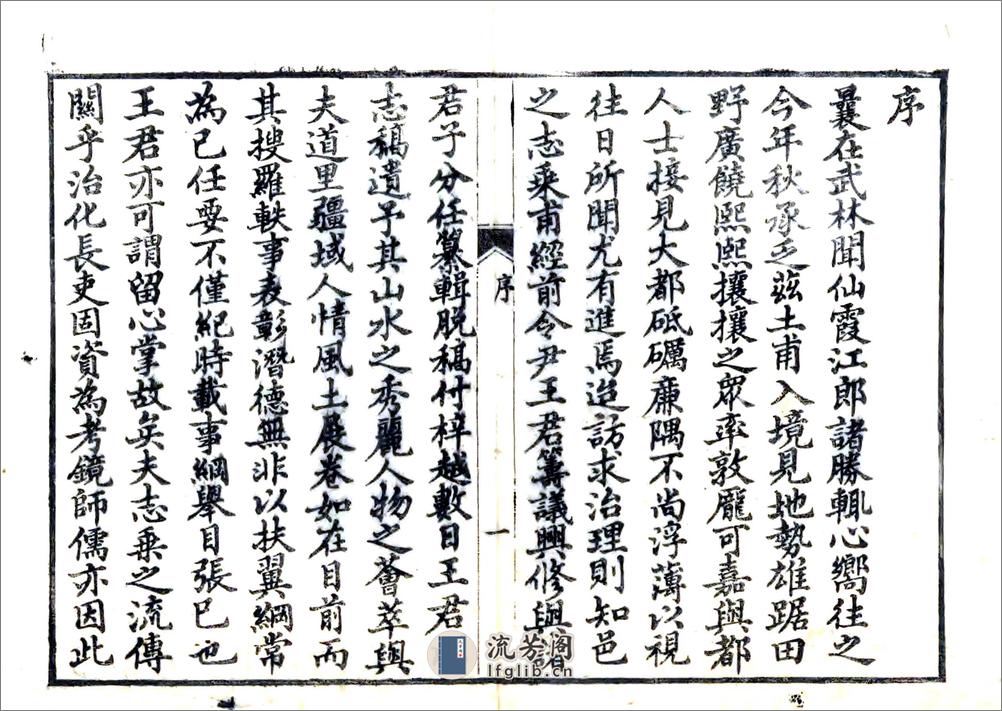 序
曩在武林聞仙霞江郎諸勝輒心嚮往之
今年秋承乏茲土甫入境見地勢雄踞田
野廣饒熙熙攘攘之眾率敦龐可嘉與都
人士接見大都砥礪廉隅不尚浮薄以視
往日所聞尤有進焉迨訪求治理則知邑
之志乘甫經前令尹王君籌議興修與
序 一
君子分任纂輯脫稿付梓越數日王君
志稿遺予其山水之秀麗人物之薈萃與
夫道里疆域人情風土展卷如在目前而
其搜羅軼事表彰潛德無非以扶翼綱常
為已任要不僅紀時載事綱舉目張已也
王君亦可謂留心掌故矣夫志乘之流傳
關乎治化長吏固資為考鏡師儒亦因此
流芳阁
lfglib.cn